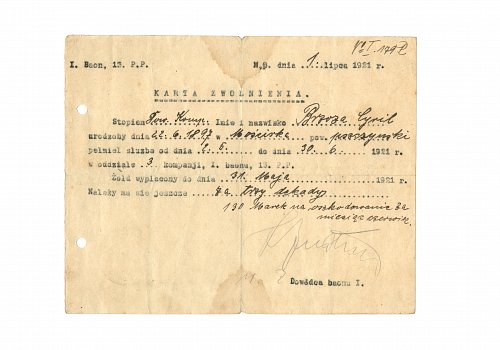 I. Baon, 13. P.P. M.p. dnia 1. lipca 1921 r.
KARTA ZWOLNIENIA.
Stopień Komp. Imię i nazwisko Brzoza Cyril
urodzony dnia 22.6.1897 w Mościska pow. pszczyński
pełnił służbę od dnia 2.5. do dnia 30.6. 1921 r.
w oddziale 3. Kompanji, I. baonu, 13. P.P.
Żołd wypłacony do dnia 31. Maja 1921 r.
Należy mu się jeszcze za trzy dekady
130 Marek na za
miesiąc czerwiec.
Dowódca baonu I.